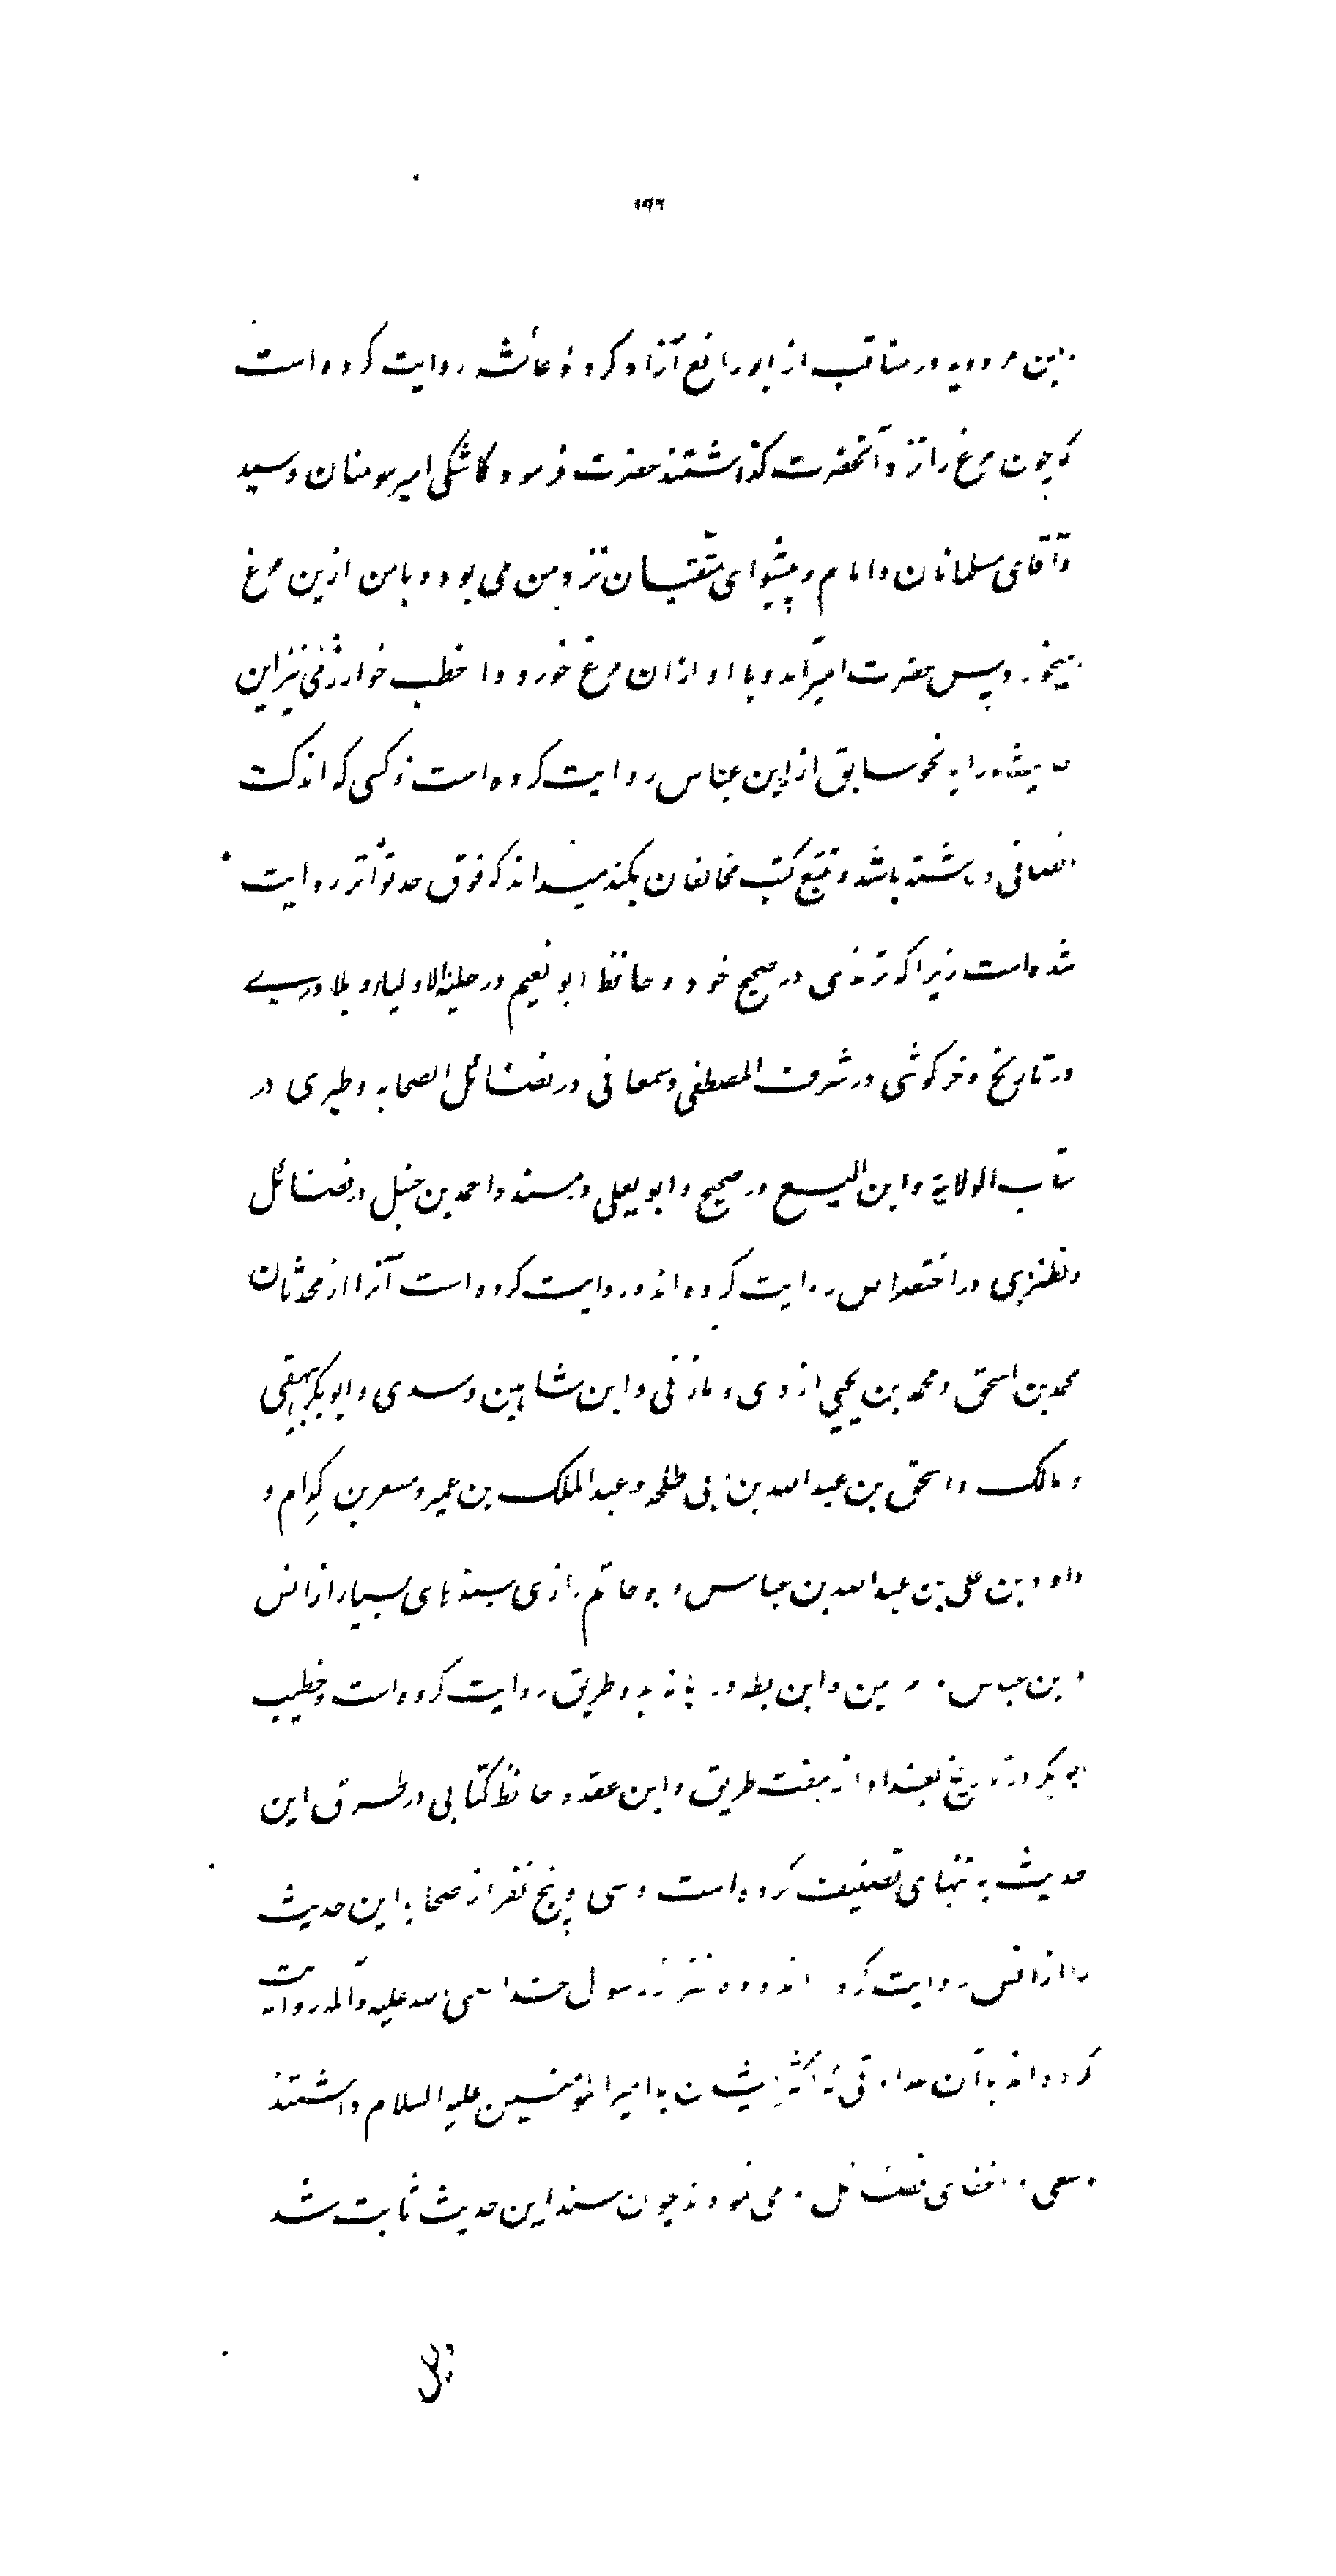 ۱۹۶
وابن مردویه در مناقب از ابو رافع آزاد کردهٔ عائشه روایت کرده است
که چون مرغ را نزد آنحضرت گذاشتند حضرت فرمود کاشکی امیر مومنان و سید
و آقای مسلمانان و امام و پیشوای متّقیان نزد من می بود و با من ازین مرغ
میخورد پس حضرت امیر آمد و با او ازان مرغ خورد و اخطب خوارزمی نیز این
حدیث را به نحو سابق از ابن عبّاس روایت کرده است و کسی که اندک
انصافی داشته باشد و تتبّع کتب مخالفان بکند میداند که فوق حد تواتر روایت
شده است زیرا که ترمذی در صحیح خود و حافظ ابو نعیم در حلیة الاولیاء و بلاذری
در تاریخ و خرکوشی در شرف المصطفی و سمعانی در فضائل الصحابه و طبری در
کتاب الولایة و ابن الیسع در صحیح و ابو یعلی در مسند و احمد بن حنبل در فضائل
و نطنزی در اختصاص روایت کرده اند و روایت کرده است آنرا از محدثان
محمد بن اسحق و محمد بن یحیی ازدی و مازنی و ابن شاهین و سدی و ابوبکر بیهقی
و مالک و اسحق بن عبد الله بن ابی طلحه و عبد الملک بن عمیر و مسعر بن کدام و
داود بن علی بن عبد الله بن عباس و ابو حاتم رازی بسندهای بسیار از انس
و ابن عباس و ابن بطه در ابانه بدو طریق روایت کرده است و خطیب
ابو بکر در تاریخ بغداد از هفت طریق و ابن عقده حافظ کتابی در طرق این
حدیث به تنهای تصنیف کرده است و سی و پنج نفر از صحابه این حدیث
را از انس روایت کرده اند و ده نفر از رسول خدا صلی الله علیه وآله روایت
کرده اند با آن عداوتی که اکثر ایشان با امیر المومنین علیه السلام داشتند
و سعی در اخفای فضائل او می نمودند چون سند این حدیث ثابت شد